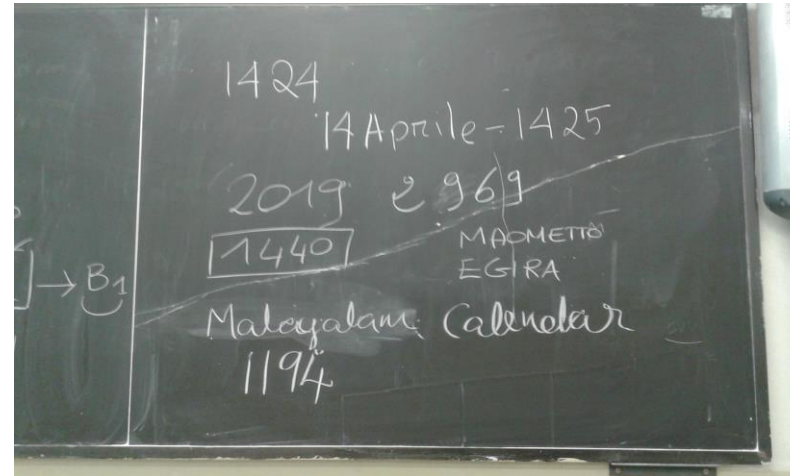 1424
14 Aprile - 1425
2019 2969
1440
MAOMETTO
EGIRA
→ B1
Malayalam Calendar
1194